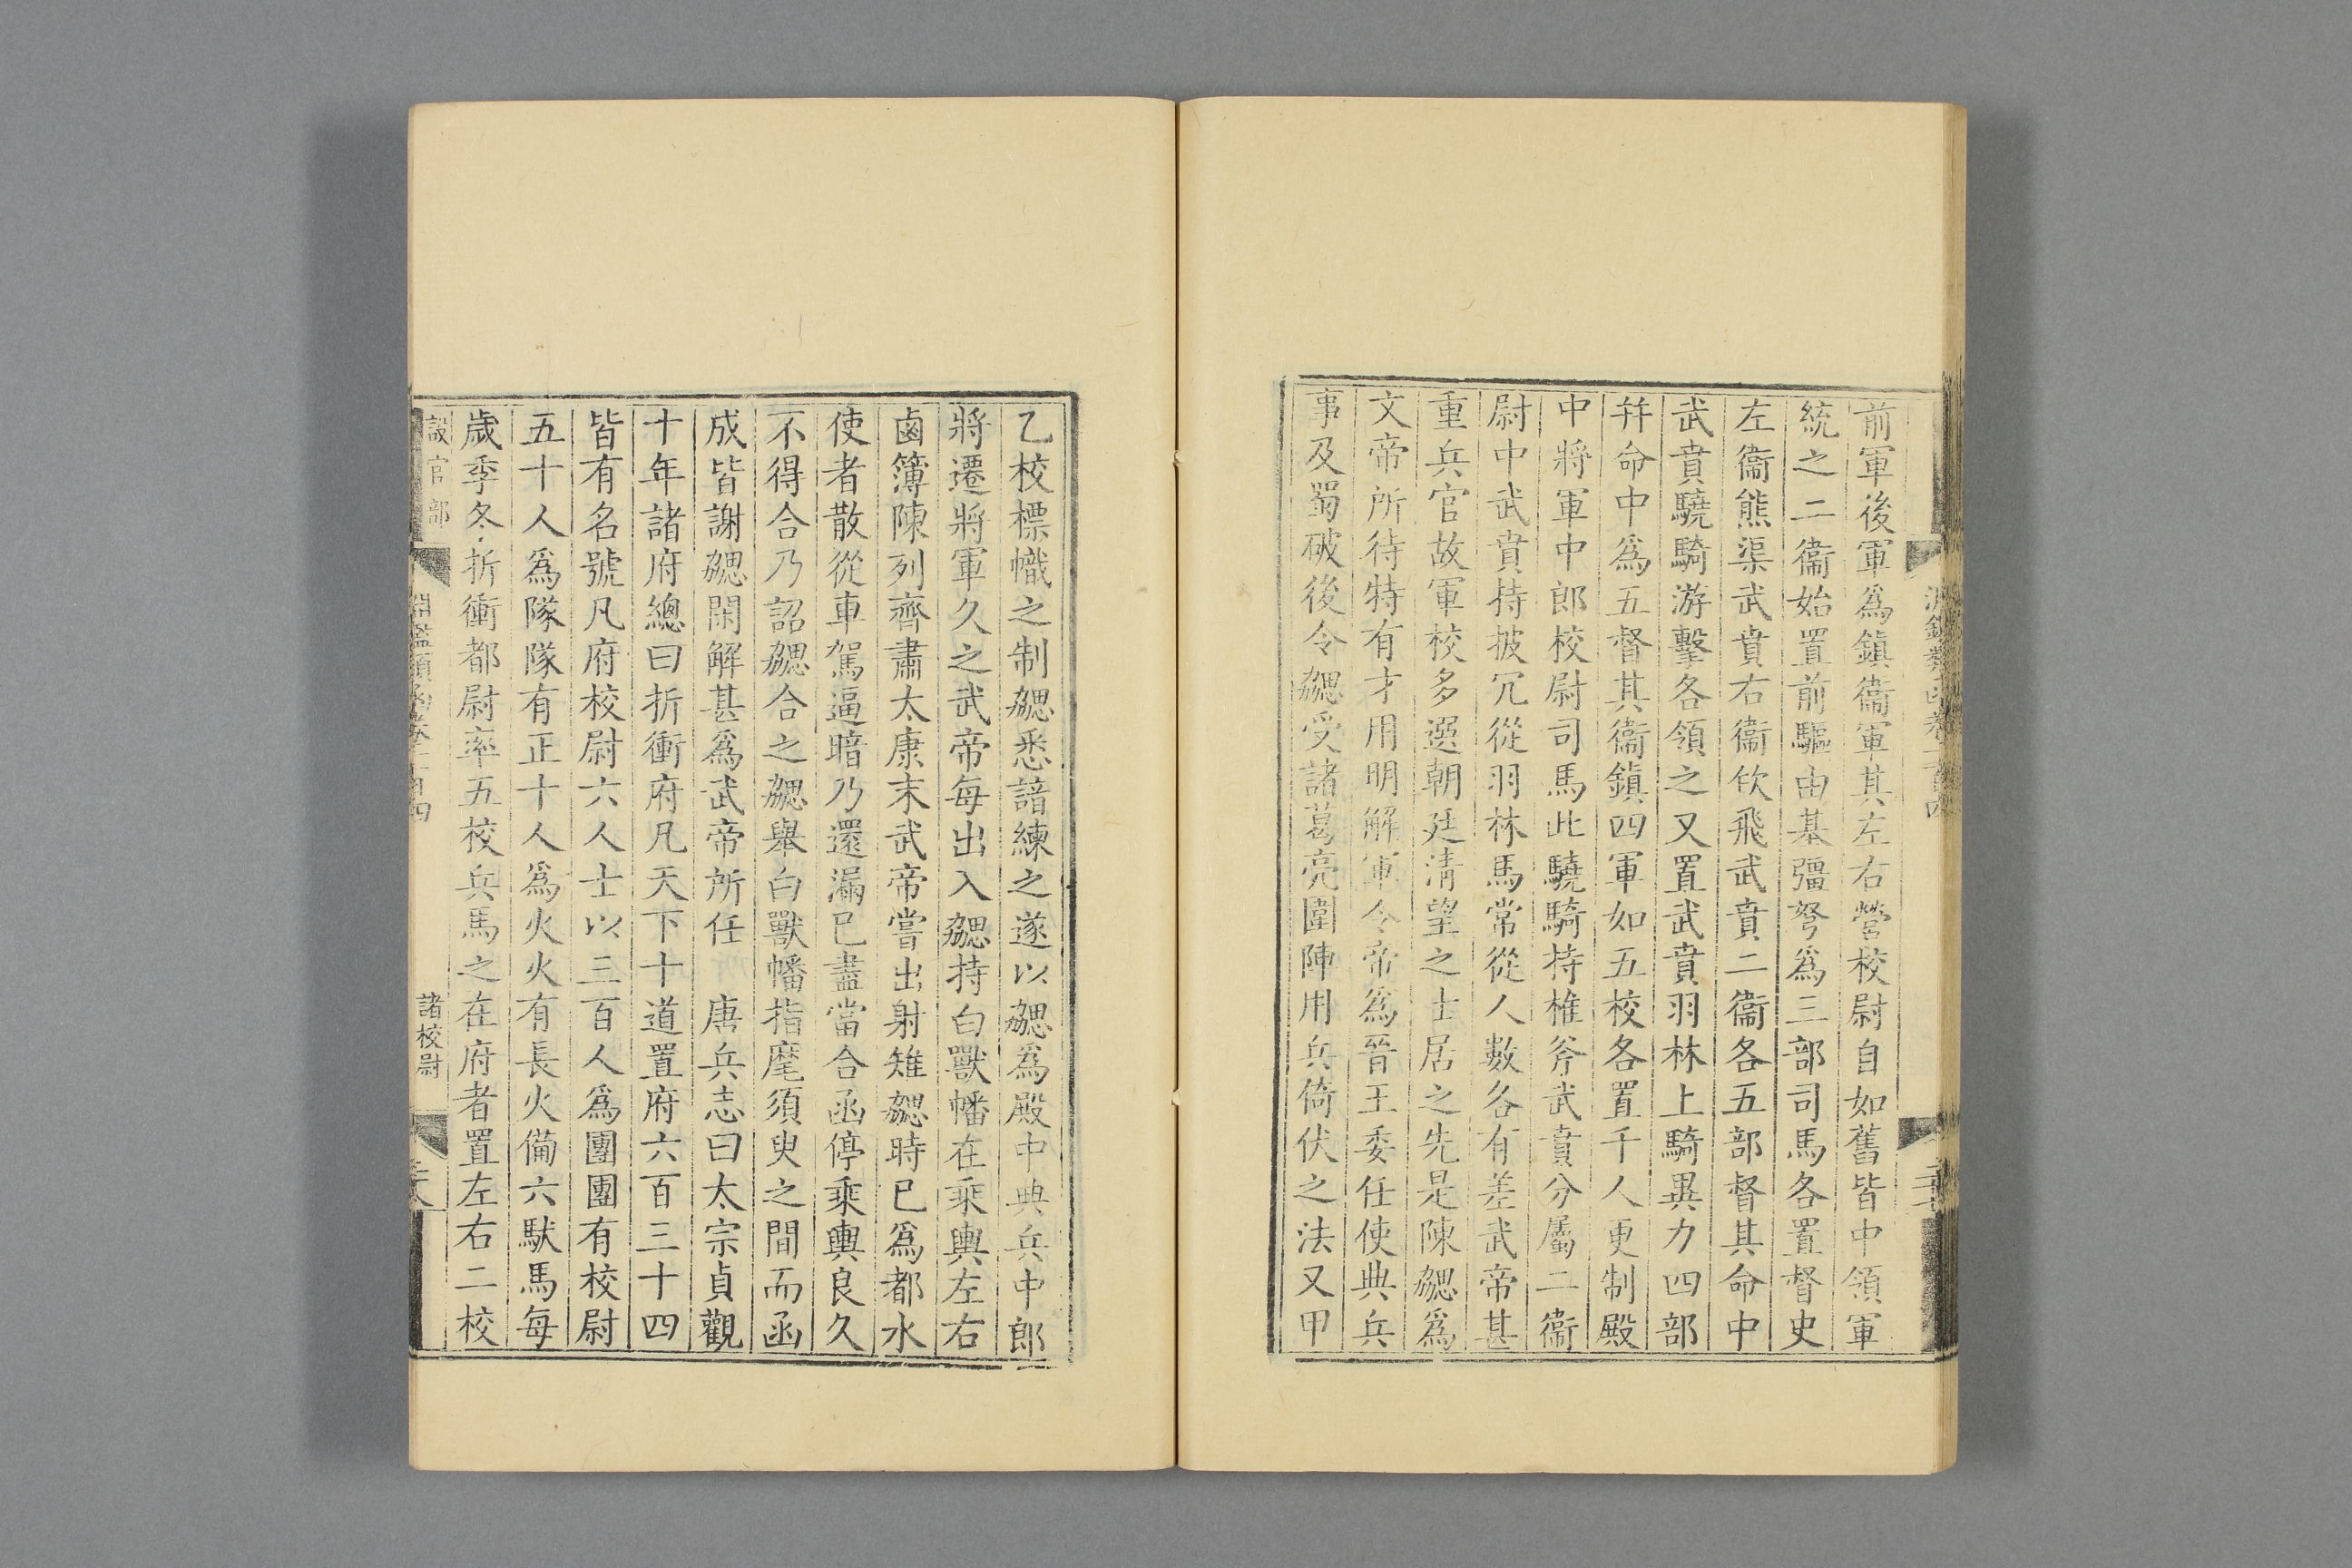 前軍後軍為鎮衞軍其左右營校尉自如舊皆中領軍
統之二衞始置前驅由基彊弩為三部司馬各置督史
左衞熊渠武賁右衞佽飛武賁二衞各五部督其命中
武賁驍騎游擊各領之又置武賁羽林上騎異力四部
并命中為五督其衞鎮四軍如五校各置千人更制殿
中將軍中郎校尉司馬此驍騎持椎斧武賁分屬二衞
尉中武賁持披冗從羽林馬常從人數各有差武帝甚
重兵官故軍校多選朝廷清望之士居之先是陳勰為
文帝所待特有才用明解軍令帝為晉王委任使典兵
事及蜀破後令勰受諸葛亮圍陣用兵倚伏之法又甲
乙校標幟之制勰悉諳練之遂以勰為殿中典兵中郎
將遷將軍久之武帝每出入勰持白獸幡在乘輿左右
鹵簿陳列齊肅太康末武帝嘗出射雉勰時已為都水
使者散從車駕逼暗乃還漏已盡當合函停乘輿良久
不得合乃詔勰合之勰舉白獸幡指麾須臾之間而函
成皆謝勰閑解甚為武帝所任　唐兵志曰太宗貞觀
十年諸府總曰折衝府凡天下十道置府六百三十四
皆有名號凡府校尉六人士以三百人為團團有校尉
五十人為隊隊有正十人為火火有長火備六馱馬每
歲季冬折衝都尉率五校兵馬之在府者置左右二校
設官部
淵鑑類函卷
諸校尉